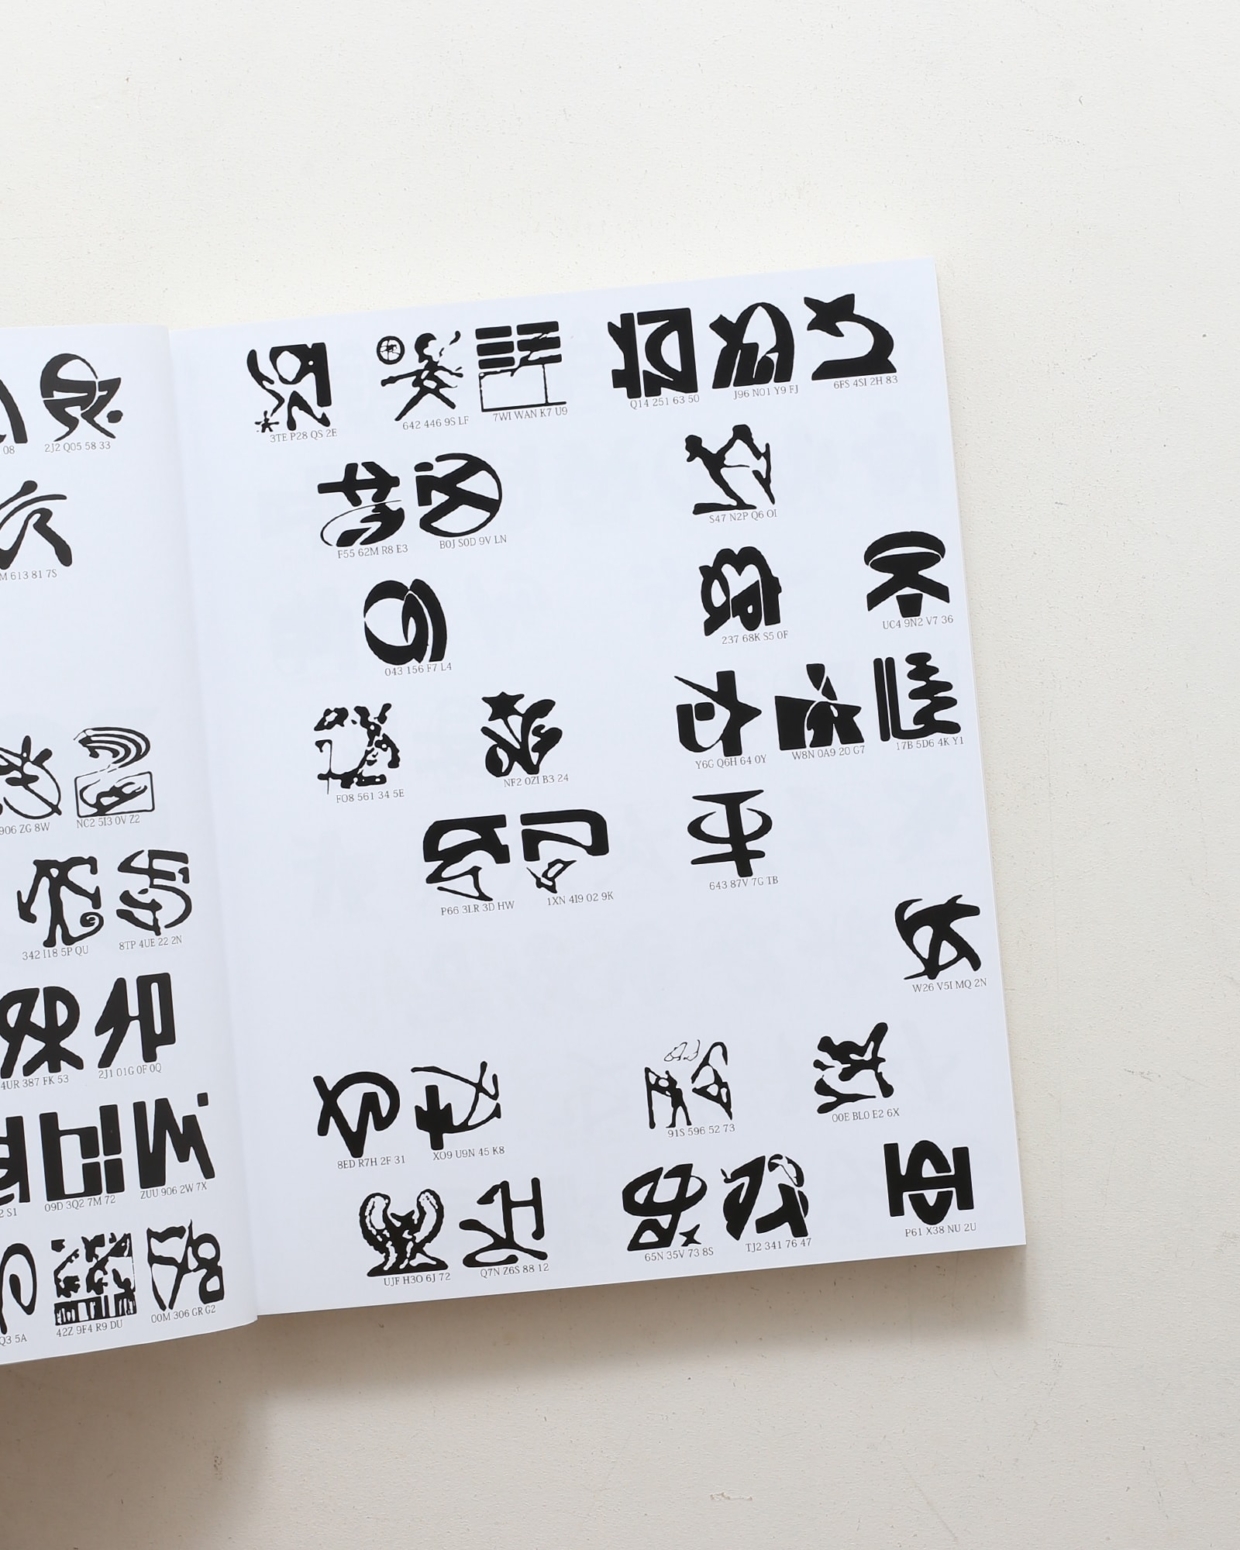 08
2J2 Q05 58 33
M 613 81 7S
906 ZG 8W
NC2 5I3 0V Z2
342 I18 5P QU
8TP 4UE 22 2N
4UR 387 FK 53
2J1 01G 0F 0Q
2 S1
09D 3Q2 7M 72
ZUU 906 2W 7X
Q3 5A
42Z 9F4 R9 DU
00M 306 GR G2
3TE P28 QS 2E
642 446 9S LF
7WI WAN K7 U9
Q14 251 63 50
J96 NO1 Y9 FJ
6FS 4SI 2H 83
F55 62M R8 E3
B0J S0D 9V LN
S47 N2P Q6 OI
043 156 F7 L4
237 68K S5 0F
UC4 9N2 V7 36
FO8 561 34 5E
NF2 0ZI B3 24
Y6G Q6H 64 0Y
W8N 0A9 20 G7
17B 5D6 4K Y1
P66 3LR 3D HW
1XN 4I9 02 9K
643 87V 7G 1B
W26 V5I MQ 2N
8ED R7H 2F 31
XO9 U9N 45 K8
91S 596 52 73
00E BL0 E2 6X
UJF H3O 6J 72
Q7N Z6S 88 12
65N 35V 73 8S
TJ2 341 76 47
P61 X38 NU 2U